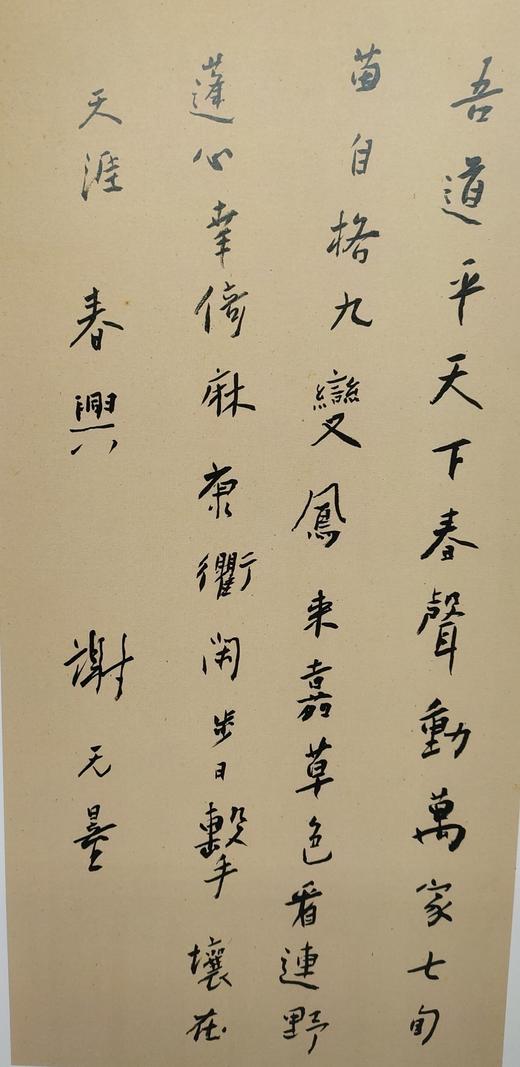 吾道平天下春聲動萬家七旬
苗自格九變鳳来嘉草色看連野
蓬心幸倚麻康衢闲步日擊壤在
天涯 春興 謝无量